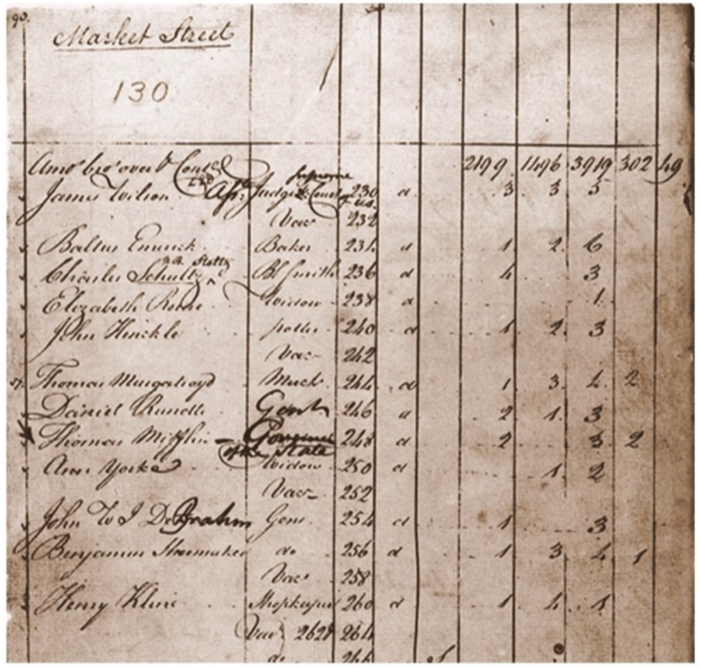 90.
Market Street
130
Amot bro't over 2199 1496 3919 302 49
James Wilson Asst Judge Supreme Court of U.S. 230 a 3 3 5
Vac 232
Baltus Emrick Baker 234 a 1 2 6
Charles Schultz Bl. Smith 236 a 4 3
Elizabeth Widow 238 a 1
John Hinckle potter 240 a 1 2 3
Vac 242
Thomas Murgatroyd Mercht 244 a 1 3 4 2
Daniel Rundle Gent 246 a 2 1 3
Thomas Mifflin Governor of the State 248 a 2 3 2
Ann Yorke Widow 250 a 1 2
Vac 252
John W I DeBrahm Gent 254 a 1 3
Benjamin Shoemaker do 256 a 1 3 4 1
Vac 258
Henry Kline Shopkeeper 260 a 1 4 1
Vac 262 & 264
do 266